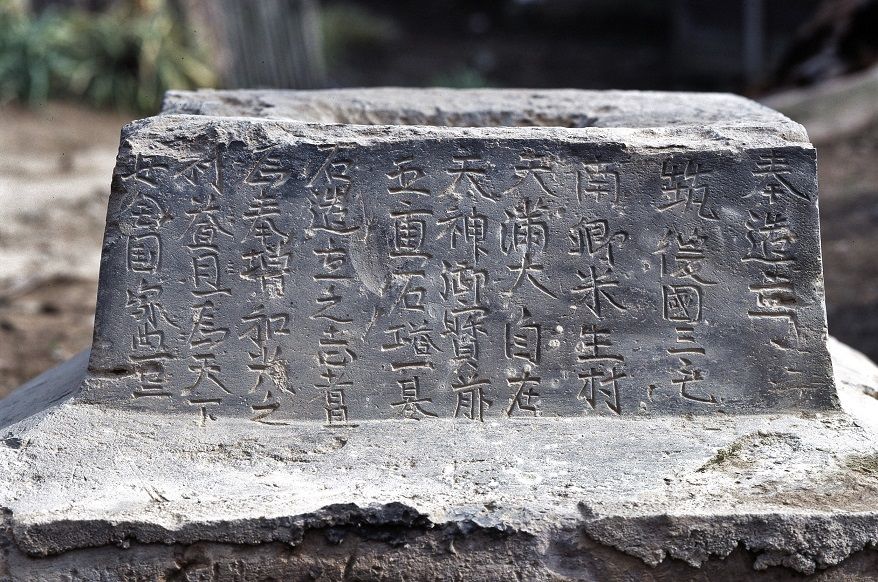 奉造立
筑後國三毛
南郷米生村
天満大自在
天神御寳前
五重石塔一基
右造立之志者
為奉増和光之
利益且為天下
安全国家